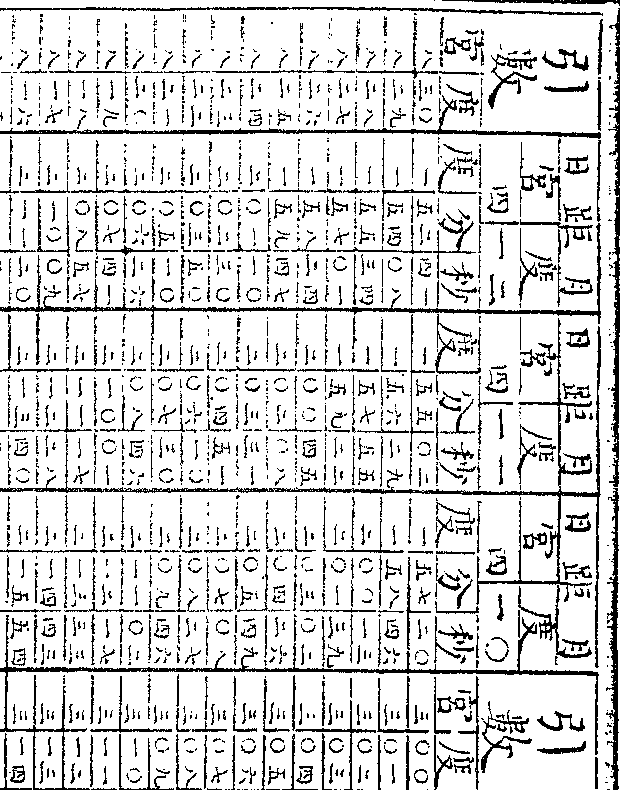 引數 日距月 日距月 日距月 引數
宮四度一二 宮四度一一 宮四度一〇
宮 度 度 分 秒 度 分 秒 度 分 秒 宮 度
八 三〇 一 五二 四一 一 五五 〇二 一 五七 二〇 三 〇〇
八 二九 一 五四 〇八 一 五六 二九 一 五八 四六 三 〇一
八 二八 一 五五 三四 一 五七 五五 二 〇〇 一三 三 〇二
八 二七 一 五七 〇一 一 五九 二二 二 〇一 三九 三 〇三
八 二六 一 五八 二四 二 〇〇 四五 二 〇三 〇二 三 〇四
八 二五 一 五九 四七 二 〇二 〇八 二 〇四 二六 三 〇五
八 二四 二 〇一 一〇 二 〇三 三一 二 〇五 四九 三 〇六
八 二三 二 〇二 三〇 二 〇四 五一 二 〇七 〇八 三 〇七
八 二二 二 〇三 五〇 二 〇六 一〇 二 〇八 二七 三 〇八
八 二一 二 〇五 一〇 二 〇七 三〇 二 〇九 四六 三 〇九
八 二〇 二 〇六 二六 二 〇八 四六 二 一一 〇三 三 一〇
八 一九 二 〇七 四一 二 一〇 〇一 二 一二 一七 三 一一
八 一八 二 〇八 五七 二 一一 一七 二 一三 三二 三 一二
八 一七 二 一〇 〇九 二 一二 二八 二 一四 四三 三 一三
八 一六 二 一一 二〇 二 一三 四〇 二 一五 五四 三 一四